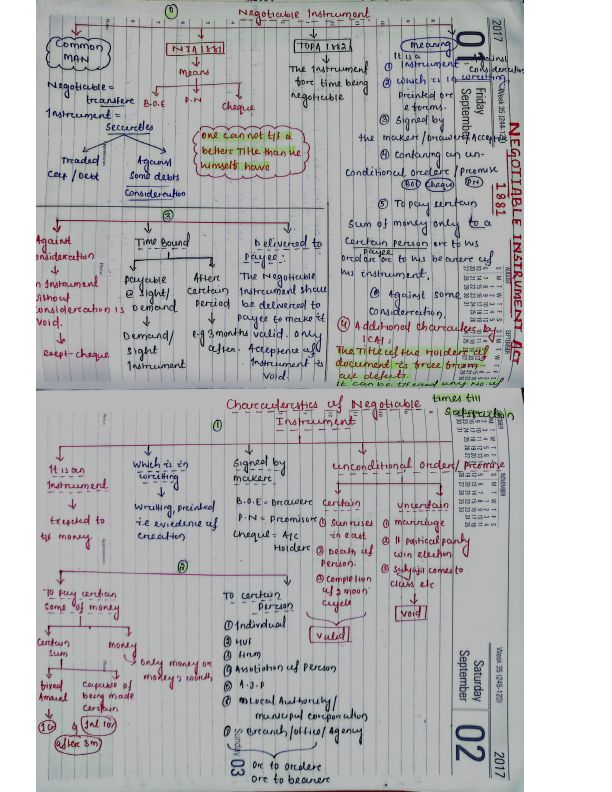 ①
Negotiable Instrument
Common
MAN
Negotiable =
transfere
Instrument =
Securities
Traded
Cap / Debt
Against
Some debts
Consideration
INIA 1881
Means
B.O.E
P.N
Cheque
one can not t/f a
better Title than he
himself have
TOPA 1882
The Instrument
fore time being
negotiable
meaning
It is a
① Instrument
Against
consideration
② which is in writing,
Preinted ore
e forms.
③ Signed by
the maker/Drawer/Acceptor
④ Containg an un-
conditional ordere / Promise
BOE Cheque PN
⑤ To pay certain
Sum of money only to a
certain person ore to his
payee
ordere ore to his bearere of
his instrument.
⑥ Against some
Consideration.
④ Additional characters by
ICAI:
The Title of the Holder of
document is free from
all defects.
It can be t/fered any No. of
times till
Satisfaction
2017
01
Friday
September
Week 35 (244-121)
NEGOTIABLE INSTRUMENT ACT
1881
③
Against
onsideration
n Instrument
ithout
consideration is
void.
except-cheque
Time Bound
Payable
@ Sight/
Demand
Demand/
Sight
Instrument
After
Certain
Period
e.g 3 months
after.
Delivered to
payee:
The Negotiable
Instrument shall
be delivered to
payee to make it
valid. only
Acceptence of
Instrument is
Void.
Characteristics of Negotiable
Instrument
①
It is an
Instrument
Expected to
t/f money
Which is in
writting
Writting, preinted
i.e evidence of
creation
Signed by
maker.
B.O.E = Drawere
P.N = Promisore
Cheque = A/c
Holdere
unconditional ordere / Promise
Certain
① Sun rises
in east
② Death of
Person.
③ Completion
of 2 moon
cycle
Valid
uncertain
① marriage
② If Political party
win election
③ Satyajit comes to
class etc.
Void
②
To pay certian
some of money
Certain
Sum
money
Only money or
money's worth
Fixed
Amount
1 Cr
Capable of
being made
certain
after 3m
To certain
Person
① Individual
② HUF
③ Firm
④ Assotiation of Person
⑤ A.J.P
⑥ Local Authority /
municipal corporation
⑦ Branch/office/Agency
ore to ordere
ore to bearere
Sunday
03
Week 35 (245-120)
Saturday
September
02
2017